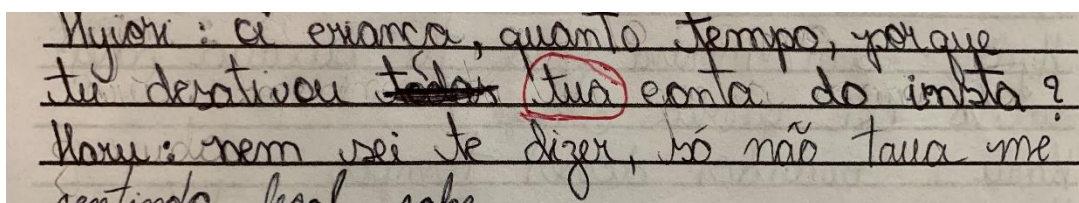 Hyiori : ai criança, quanto tempo, porque
tu desativou tua conta do insta ?
Haru : nem sei te dizer, só não tava me
sentindo legal, sabe